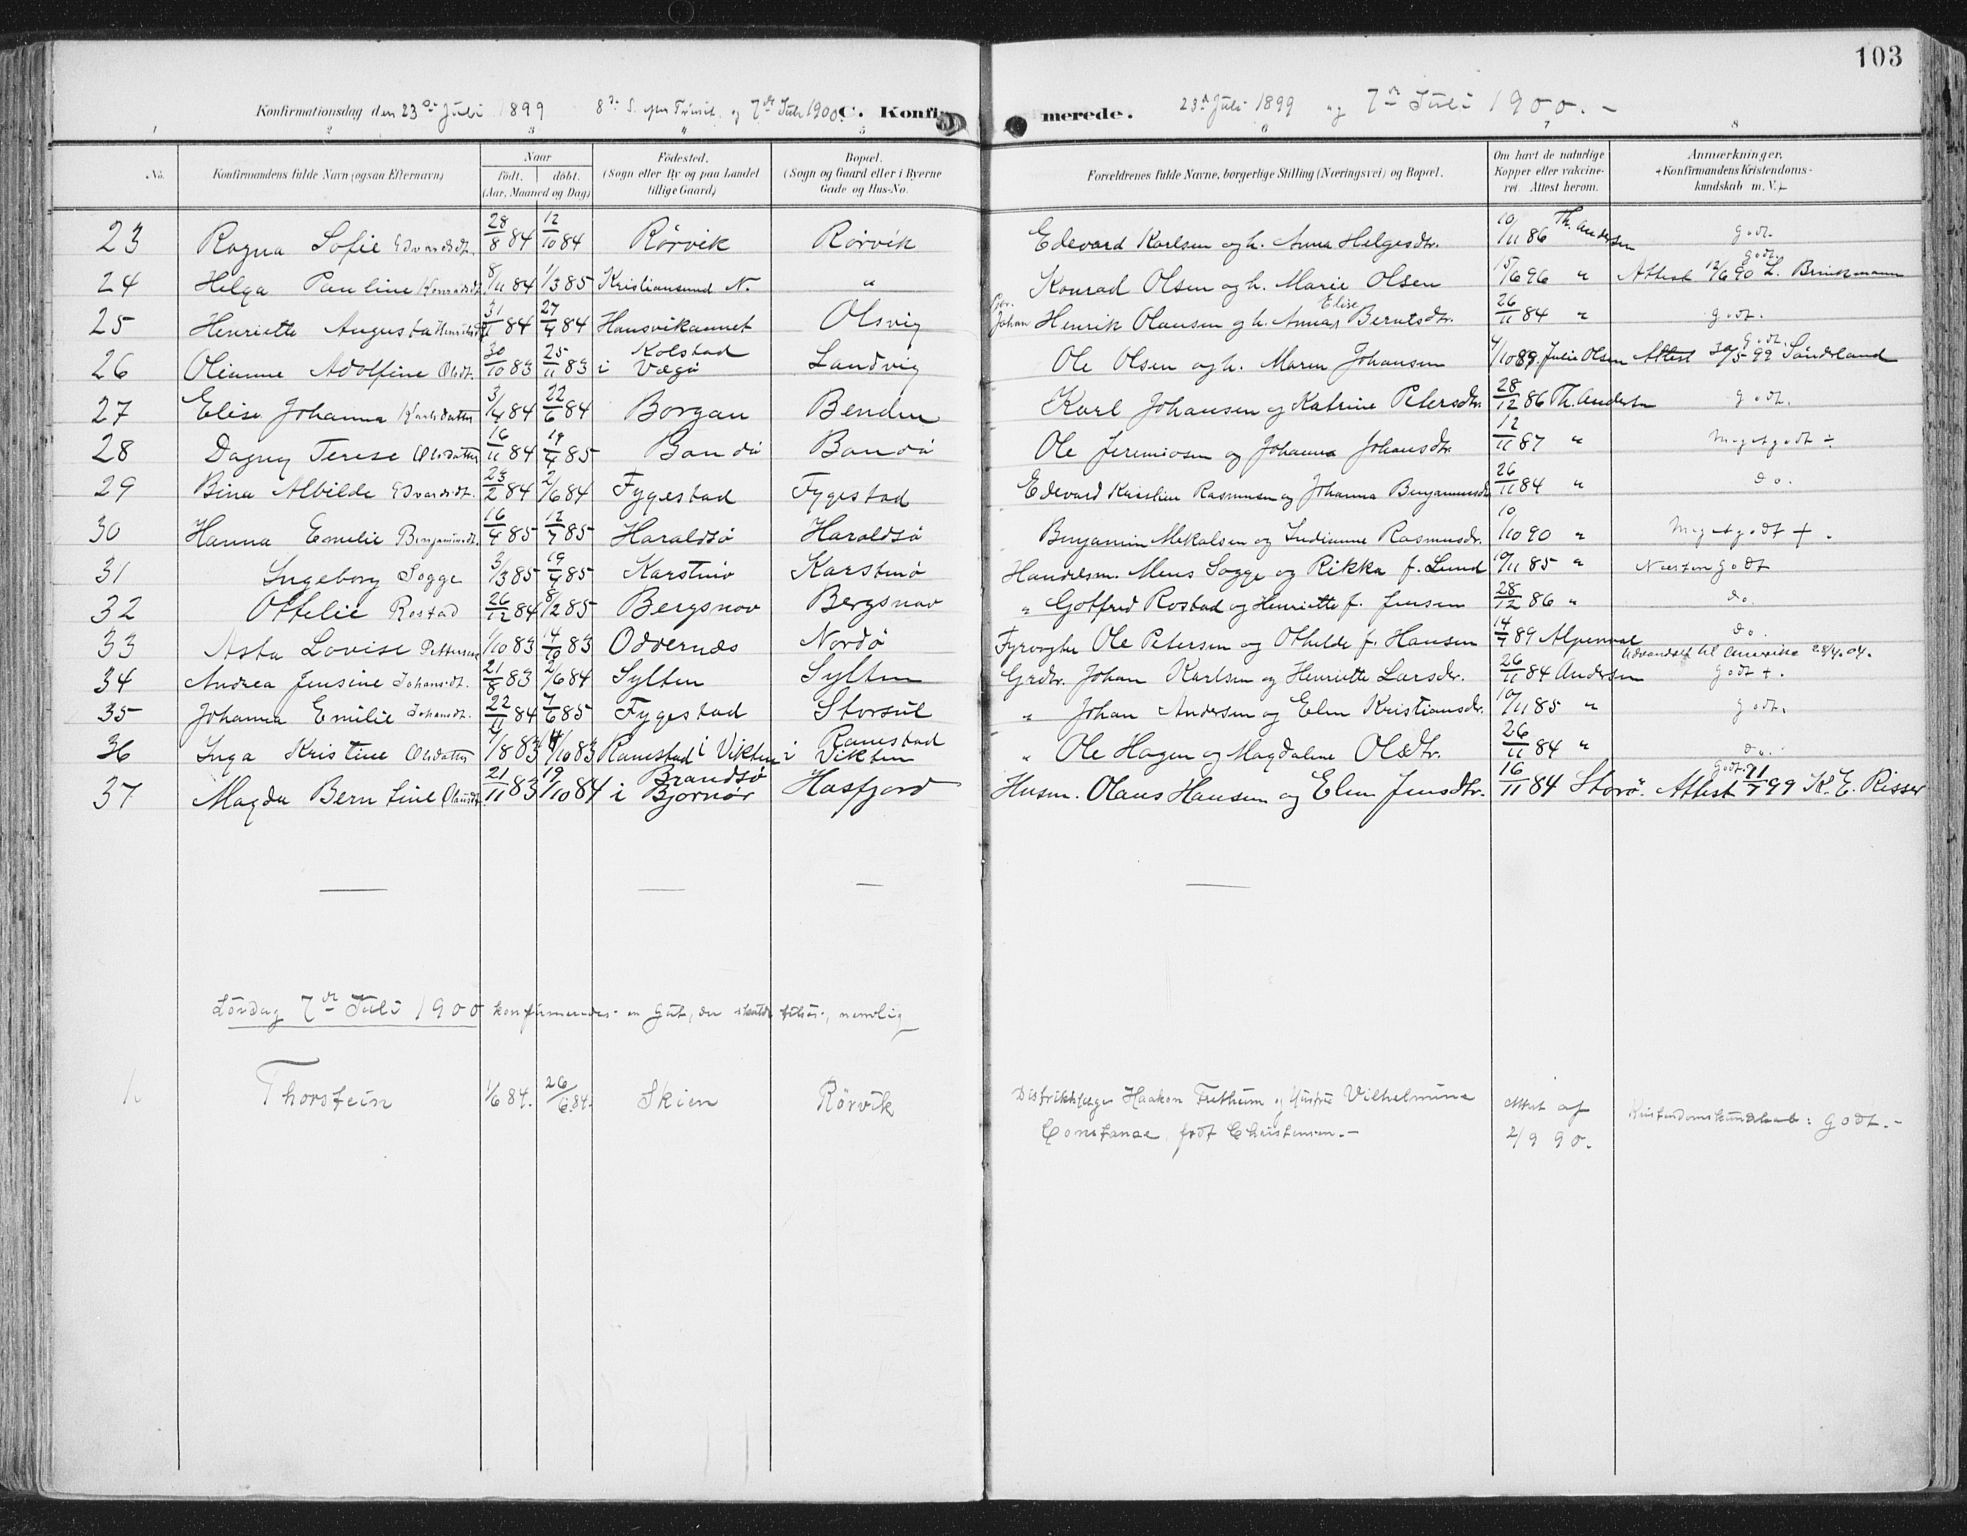 103
Konfirmationsdag den 23de Juli 1899 8de S. efter Trinit. og 7de Juli 1900. C. Konfirmerede. 23de Juli 1899 og 7de Juli 1900. -
1 2 3 4 5 6 7 8
No. Konfirmandens fulde Navn (ogsaa Efternavn) Naar født. døbt. (Aar, Maaned og Dag) Fødested. (Sogn eller By og paa Landet tillige Gaard) Bopæl. (Sogn og Gaard eller i Byerne Gade og Hus-No. Forældrenes fulde Navne, borgerlige Stilling (Næringsvei) og Bopæl. Om havt de naturlige Kopper eller vakcineret. Attest herom. Anmærkninger, (Konfirmandens Kristendomskundskab m. V.)
23 Ragna Sofie Edvardsdt. 28/8 84 12/10 84 Rørvik Rørvik Edevard Karlsen og h. Anna Helgesdtr. 10/11 86 Th. Andersen godt.
24 Helga Pauline Konradsdt 8/11 84 1/3 85 Kristiansund N. " Konrad Olsen og h. Marie Olsen 15/6 96 " godt. Attest 12/6 90 L. Brinkmann
25 Henriette Augusta Henriksdt 31/1 84 27/4 84 Hansvikannet Olsvig Johan Henrik Olausen og h. Anna Elise Berntsdtr. 26/11 84 " godt.
26 Olianne Adolfine Olsdt. 30/10 83 25/11 83 Kolstad i Vægø Landvig Ole Olsen og h. Maren Johansen 4/10 89. Julie Olsen godt. Attest 30/5 99 Sönderland
27 Elise Johanna Karlsdatter 3/4 84 22/6 84 Borgan Benden Karl Johansen og Katrine Petersdtr. 28/12 86 Th. Andersen godt.
28 Dagny Terese Olsdatter 16/11 84 19/4 85 Bondø Bondø Ole Jeremiasen og Johanna Johansdtr. 12/11 87 " Megetgodt ÷
29 Bina Albilde Edvardsdt. 23/2 84 2/6 84 Fygestad Fygestad Edevard Kristian Rasmusen og Johanna Benjaminsdtr 26/11 84 " do.
30 Hanna Emelie Benjaminsdt. 16/4 85 12/7 85 Haraldsø Haraldsø Benjamin Mekalsen og Indianne Rasmusdr. 10/10 90 " Megetgodt + .
31 Ingeborg Sogge 3/3 85 19/4 85 Karstenø Karstenø Handelsm. Mens Sogge og Rikka f. Lund 10/11 85 " Næsten godt
32 Ottelie Rostad 26/12 84 8/2 85 Bergsnov Bergsnov " Gotfred Rostad og Henriette f. Jensen 28/12 86 " do.
33 Asta Lovise Pettersen 1/10 83 14/10 83 Oddernæs Nordø Fyrvogter Ole Petersen og Othelde f. Hansen 14/7 89 do.
34 Andrea Jensine Johansdt. 21/8 83 2/6 84 Sylten Sylten Grdbr. Johan Karlsen og Henriette Larsdr. 26/11 84 Andersen Udvandret til Amerika 28/4.04. godt +.
35 Johanna Emilie Johansdt. 22/11 84 7/6 85 Fygestad Storsul " Johan Andersen og Elen Kristiansdr. 10/11 85 " godt.
36 Inga Kristine Olsdatter 1/8 83 14/10 83 Ramstad i Vikten Ramstad i Vikten " Ole Hagen og Magdalene Olsdtr. 26/11 84 " do.
37 Magda Berntine Olausdt. 21/11 83 19/10 84 Brandsø i Bjørnør Hasfjord Husm. Olaus Hansen og Elen Jensdtr. 16/11 84 Storø. Godt. Attest 11/7 99 K. E. Risser
Lördag 7de Juli 1900 konfirmeredes en Gut, der skulde , nemlig
1. Thorstein 1/6 84. 26/6 84. Skien Rørvik Distriktslæge Haakon Frethum og Hustru Vilhelmine Constanse, født Christensen. - Attest af 2/9 90. Kristendomskundskab: godt. -